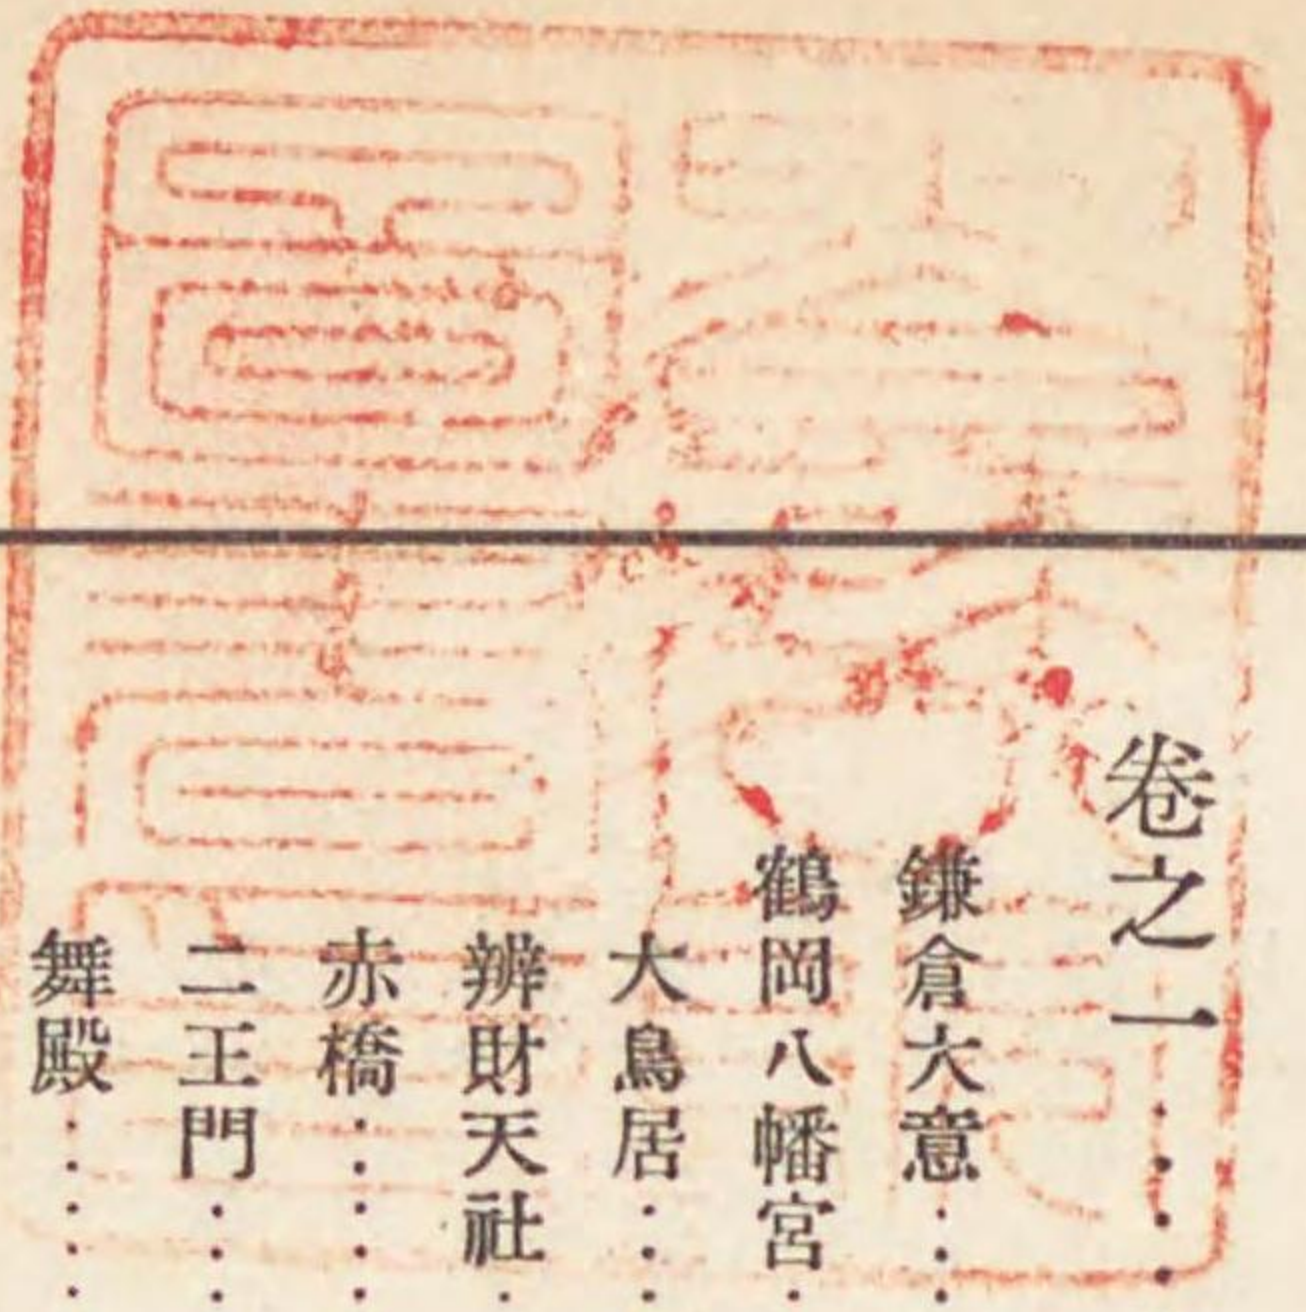 卷之一・・・・
鎌倉大意・・・
鶴岡八幡宮・
大鳥居・・・
辨財天社・
赤橋・・・・
二王門・・・
舞殿・・・・・